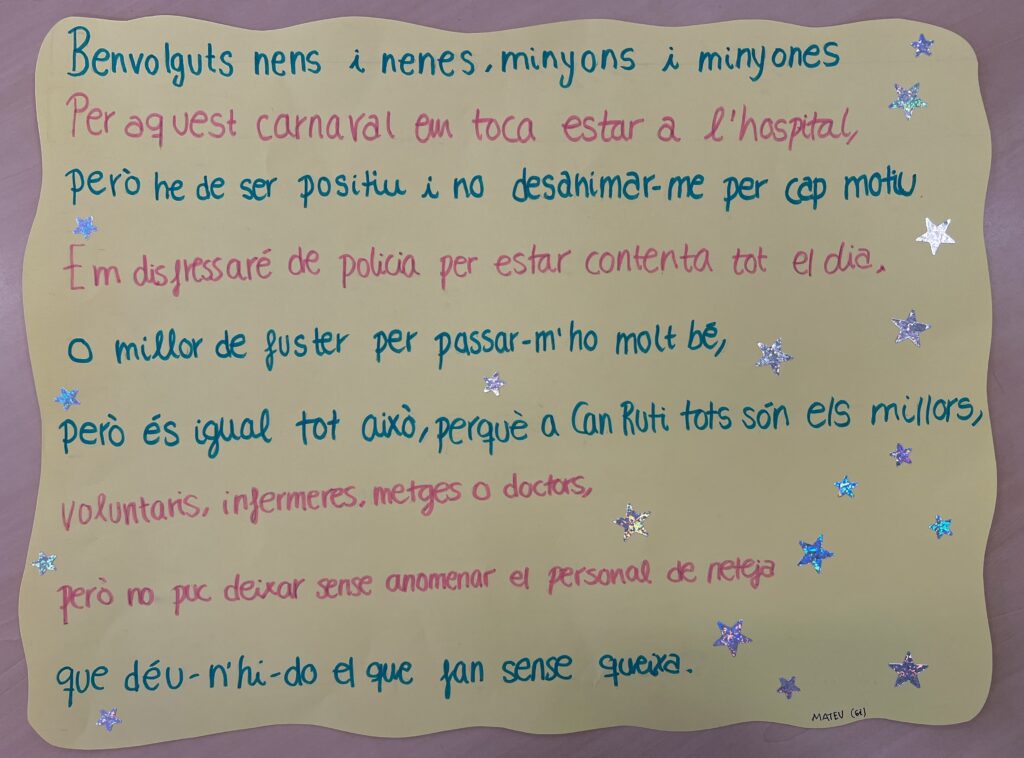 Benvolguts nens i nenes, minyons i minyones
Per aquest carnaval em toca estar a l'hospital,
però he de ser positiu i no desanimar-me per cap motiu.
Em disfressaré de policia per estar contenta tot el dia.
O millor de fuster per passar-m'ho molt bé,
però és igual tot això, perquè a Can Ruti tots són els millors,
voluntaris, infermeres, metges o doctors,
però no puc deixar sense anomenar el personal de neteja
que déu-n'hi-do el que fan sense queixa.
MATEU